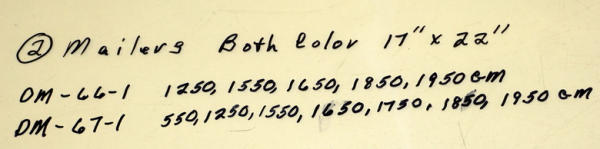 ② Mailers Both Color 17" x 22"
DM-66-1 1250, 1550, 1650, 1850, 1950 GM
DM-67-1 550, 1250, 1550, 1650, 1750, 1850, 1950 GM